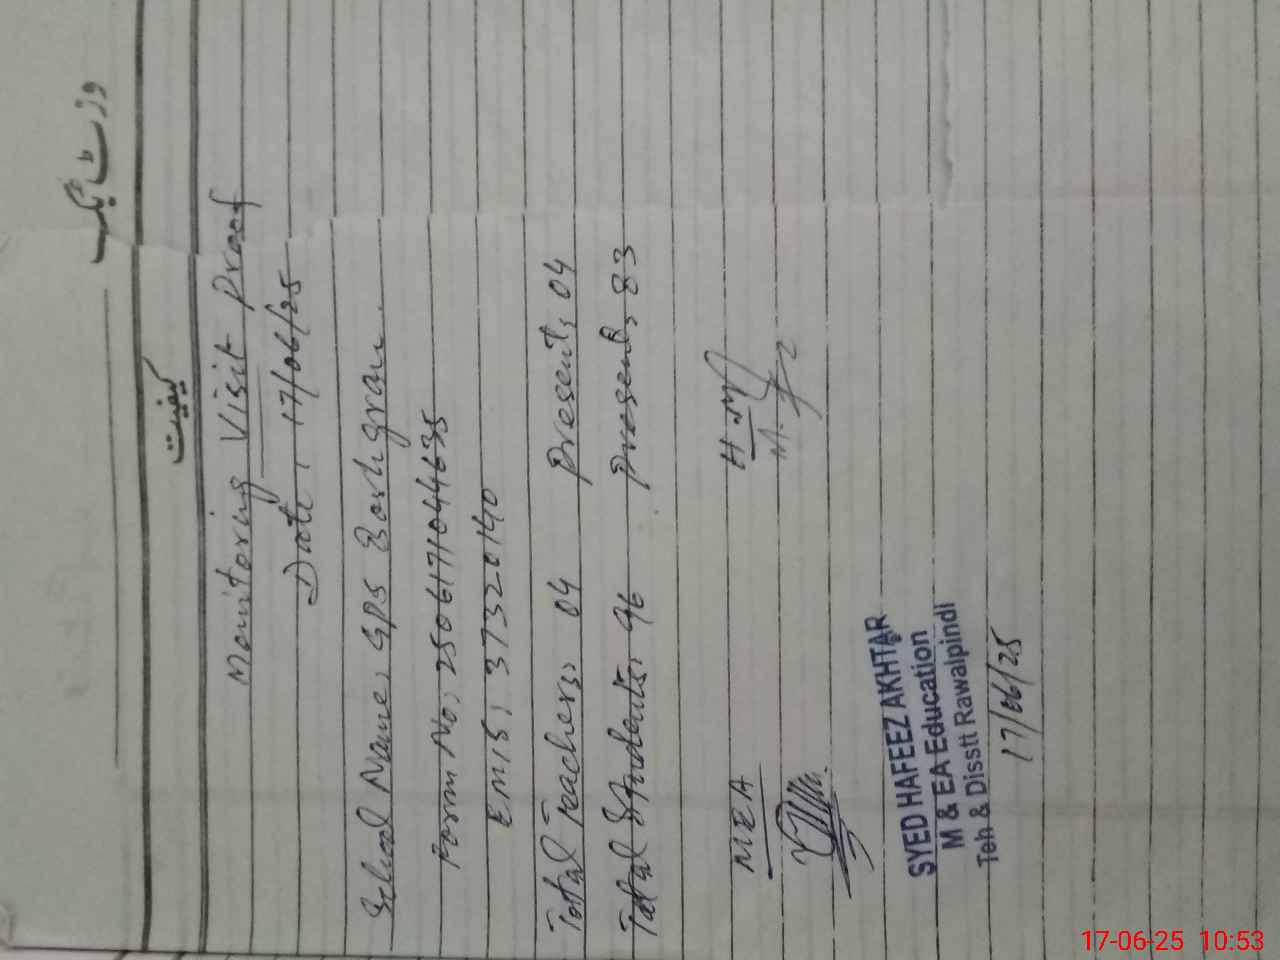 وزٹ بک
کیفیت
Monitoring Visit Proof
Date: 17/06/25
School Name: GPS
Form No: 25061171044635
EMIS: 37320140
Total Teachers: 04 Present: 04
Total Students: 96 Present: 83
MEA H.M
SYED HAFEEZ AKHTAR
M & EA Education
Teh & Disstt Rawalpindi
17/06/25
17-06-25 10:53